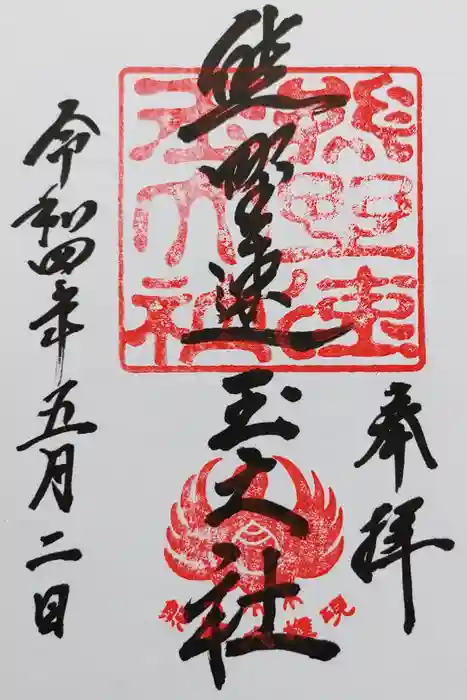 奉拝
熊野速玉大社
令和四年五月二日
熊野速
玉大社